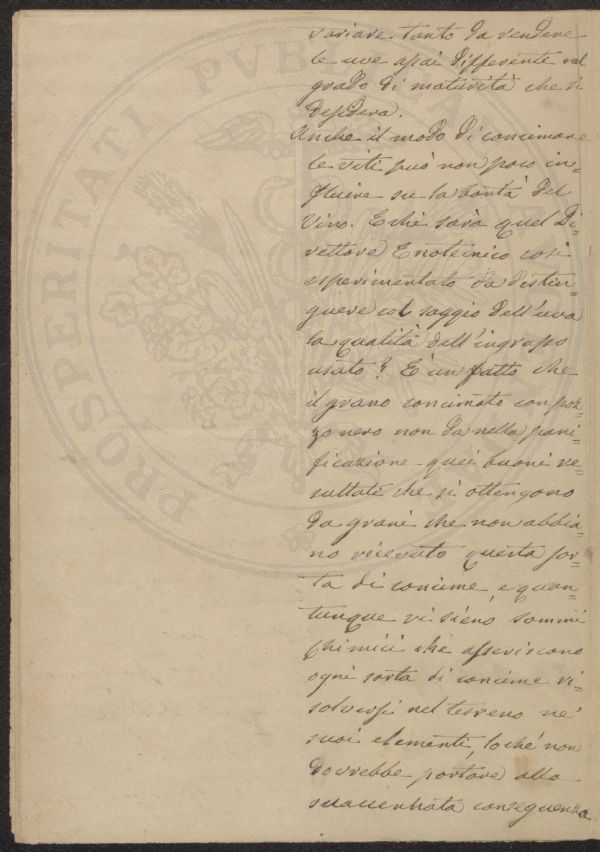 variare tanto da rendere
le uve assai differente nel
grado di maturità che si
desidera.
Anche il modo di concimare
le viti può non poco in=
fluire su la bontà del
Vino. E chi sarà quel Di=
rettore Enotecnico così
esperimentato da distin=
guere col saggio dell'uva
la qualità dell'ingrasso
usato? È un fatto che
il grano concimato con poz=
zo nero non da nella pani=
ficazione quei buoni re=
sultati che si ottengono
da grani che non abbia=
no ricevuto questa sor=
ta di concime, e quan=
tunque vi sieno sommi
Chimici che asseriscono
ogni sorta di concime ri=
solversi nel terreno ne'
suoi elementi, loché non
dovrebbe portare alla
suaccennata conseguenza
PROSPERITATI PVBLICA